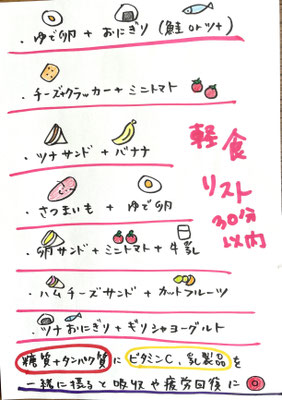 ・ゆで卵 + おにぎり (鮭 or ツナ)
・チーズ+クラッカー + ミニトマト
・ツナサンド + バナナ
・さつまいも + ゆで卵
・卵サンド + ミニトマト + 牛乳
・ハムチーズサンド + カットフルーツ
・ツナおにぎり + ギリシャヨーグルト
軽食
リスト
30分
以内
糖質+タンパク質に ビタミンC、乳製品を
一緒に摂ると吸収や疲労回復に◎